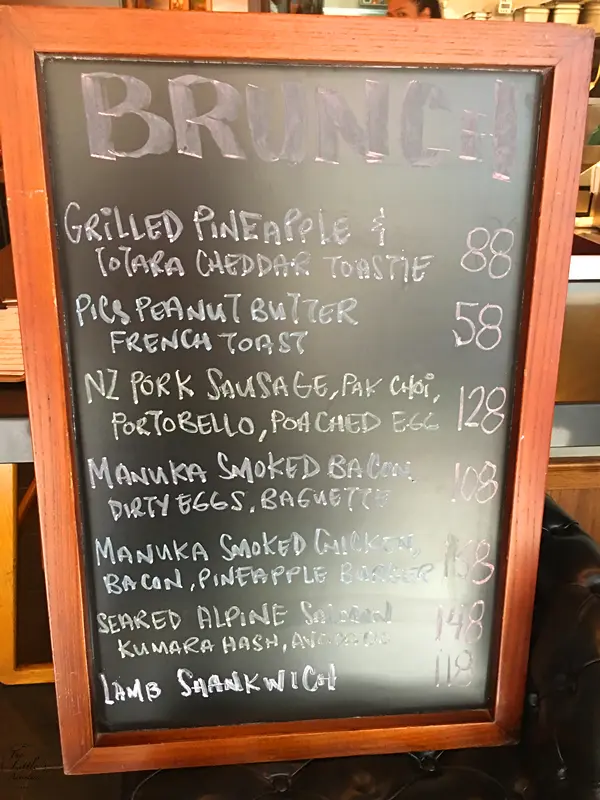 BRUNCH
GRILLED PINEAPPLE &
TOTARA CHEDDAR TOASTIE 88
PICS PEANUT BUTTER
FRENCH TOAST 58
NZ PORK SAUSAGE, PAK CHOI,
PORTOBELLO, POACHED EGG 128
MANUKA SMOKED BACON,
DIRTY EGGS, BAGUETTE 108
MANUKA SMOKED CHICKEN,
BACON, PINEAPPLE BURGER
SEARED ALPINE SALMON
KUMARA HASH, AVOCADO 148
LAMB SHANKWICH 118